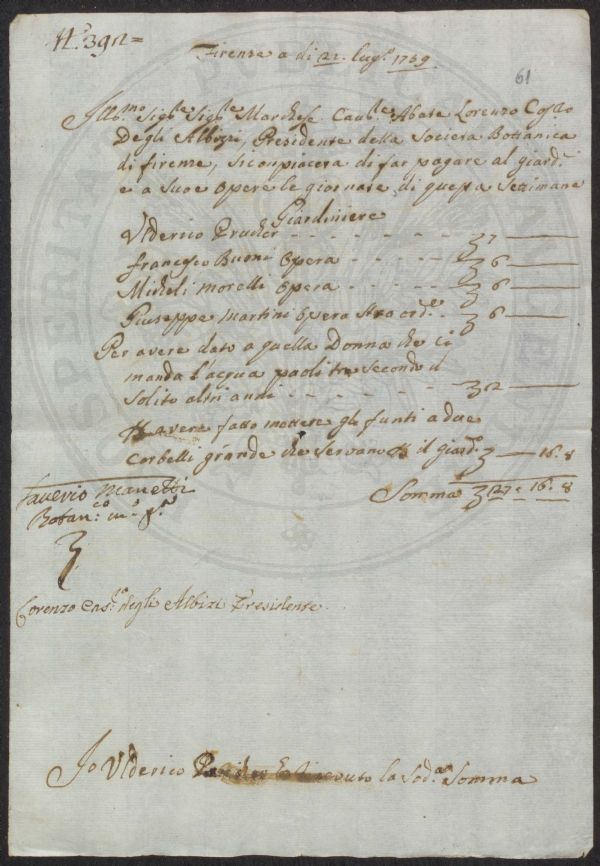 N.° 392=
Firenze a di 22. lug.° 1769
61
Ill.mo Sig.re Sig.re Marchese Cav.re Abate Lorenzo
Degli Albizzi, Presidente della Societa Bottanica
di firenze, si conpiacera di far pagare al giard.e
e a Suoe Opere le giornate di questa Settimane
Ulderico Prucher Giardiniere - - - - - 3 7 —
francesco Buoni Opera - - - - 3 6 —
Micheli Morelli Opera - - - 3 6 —
Giuseppe Martini Opera Stra ord.e - 3 6 —
Per avere dato a quella Donna che ci
manda l'acqua paoli tre secondo il
Solito altri anni - - - - - - - 3 2 —
avere fatto mettere gli funti a due
Corbelli grande che servano il giard.e 3 — 16. 8
Somma 3 27 = 16. 8
Saverio Manetti
Botan.co
Lorenzo Cas.o degli Albizi Presidente
Io Ulderico la Sod.a Somma